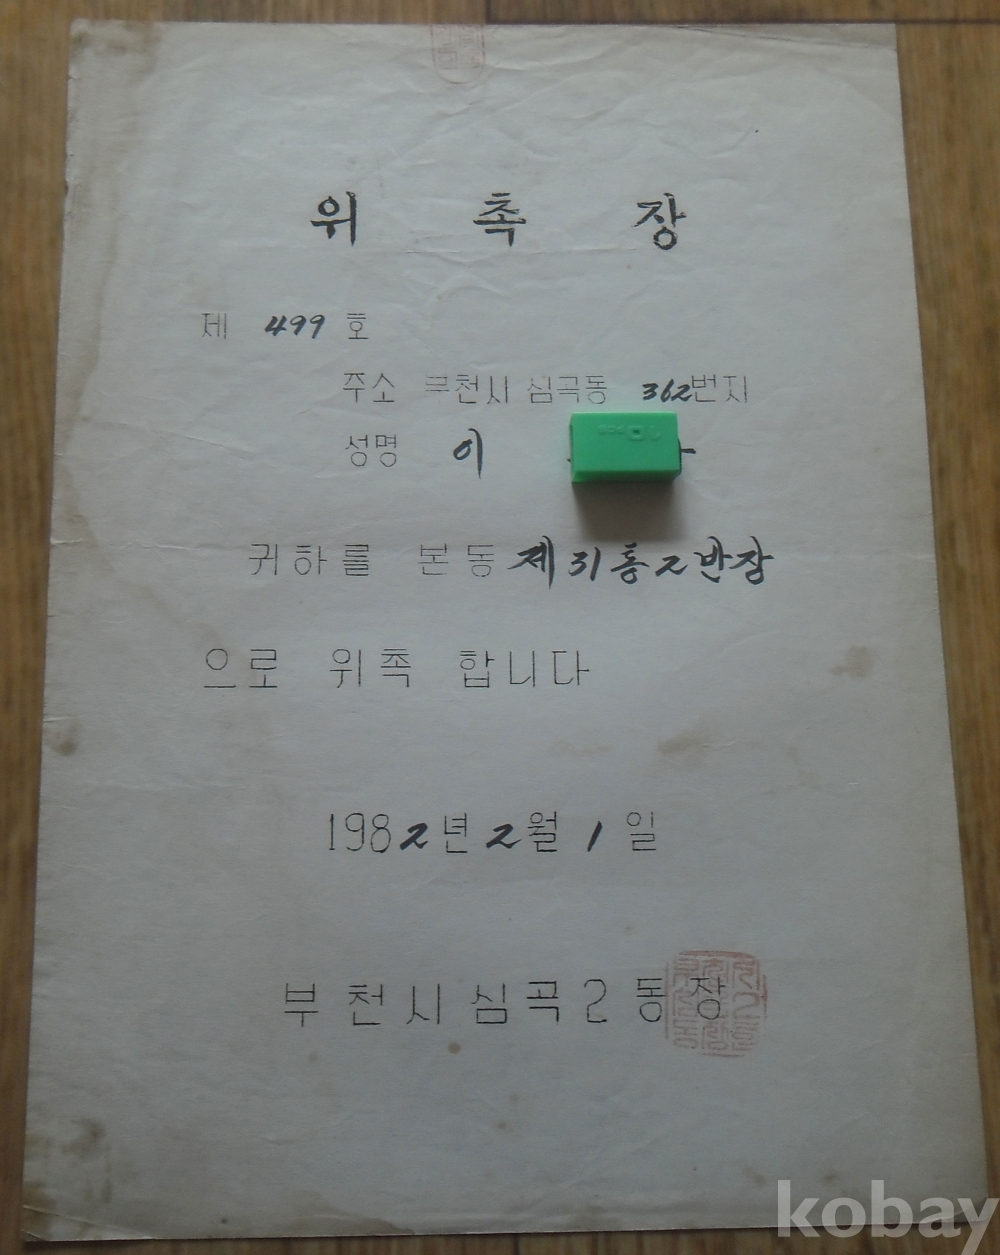 위 촉 장
제 499 호
주소 부천시 심곡동 362번지
성명 이
귀하를 본동 제31통2반장
으로 위촉 합니다
1982년 2월 1일
부천시심곡2동장
kobay